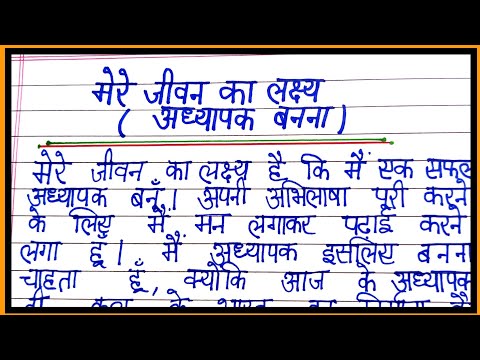 मेरे जीवन का लक्ष्य
( अध्यापक बनना )
मेरे जीवन का लक्ष्य है कि मैं एक सफल
अध्यापक बनूँ। अपनी अभिलाषा पूरी करने
के लिए मैं मन लगाकर पढ़ाई करने
लगा हूँ। मैं अध्यापक इसलिए बनना
चाहता हूँ, क्योंकि आज के अध्यापक
ही कल के भारत का निर्माता है